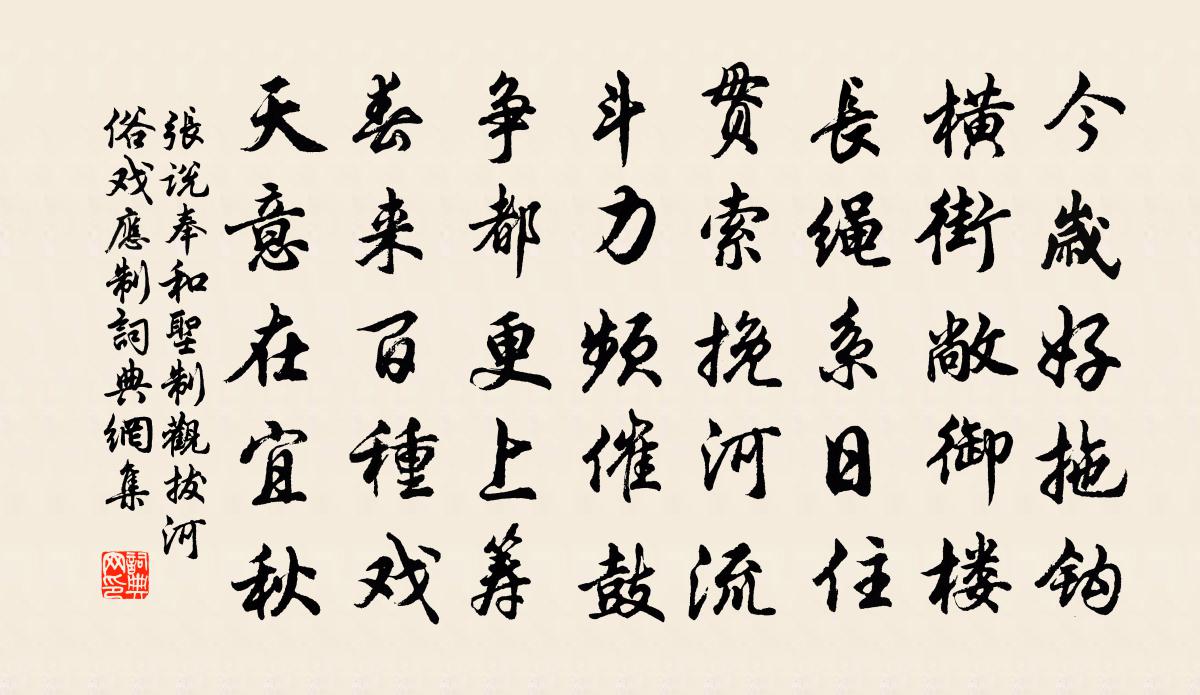 今歲好拖钩
橫街敞御楼
長绳系日住
贯索挽河流
斗力频催鼓
争都更上筹
春来百種戏
天意在宜秋
張说奉和聖制觀拔河
俗戏應制詞典網集
詞典网印